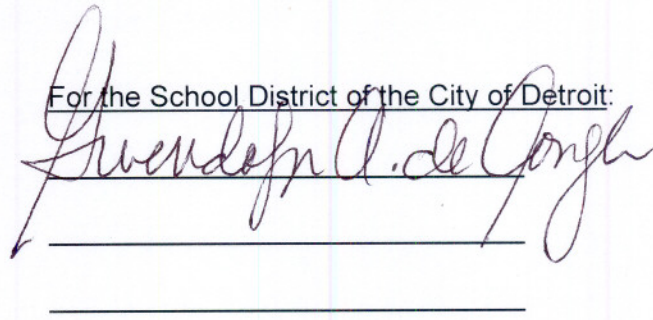 For the School District of the City of Detroit:
Gwendolyn A. de Jongh